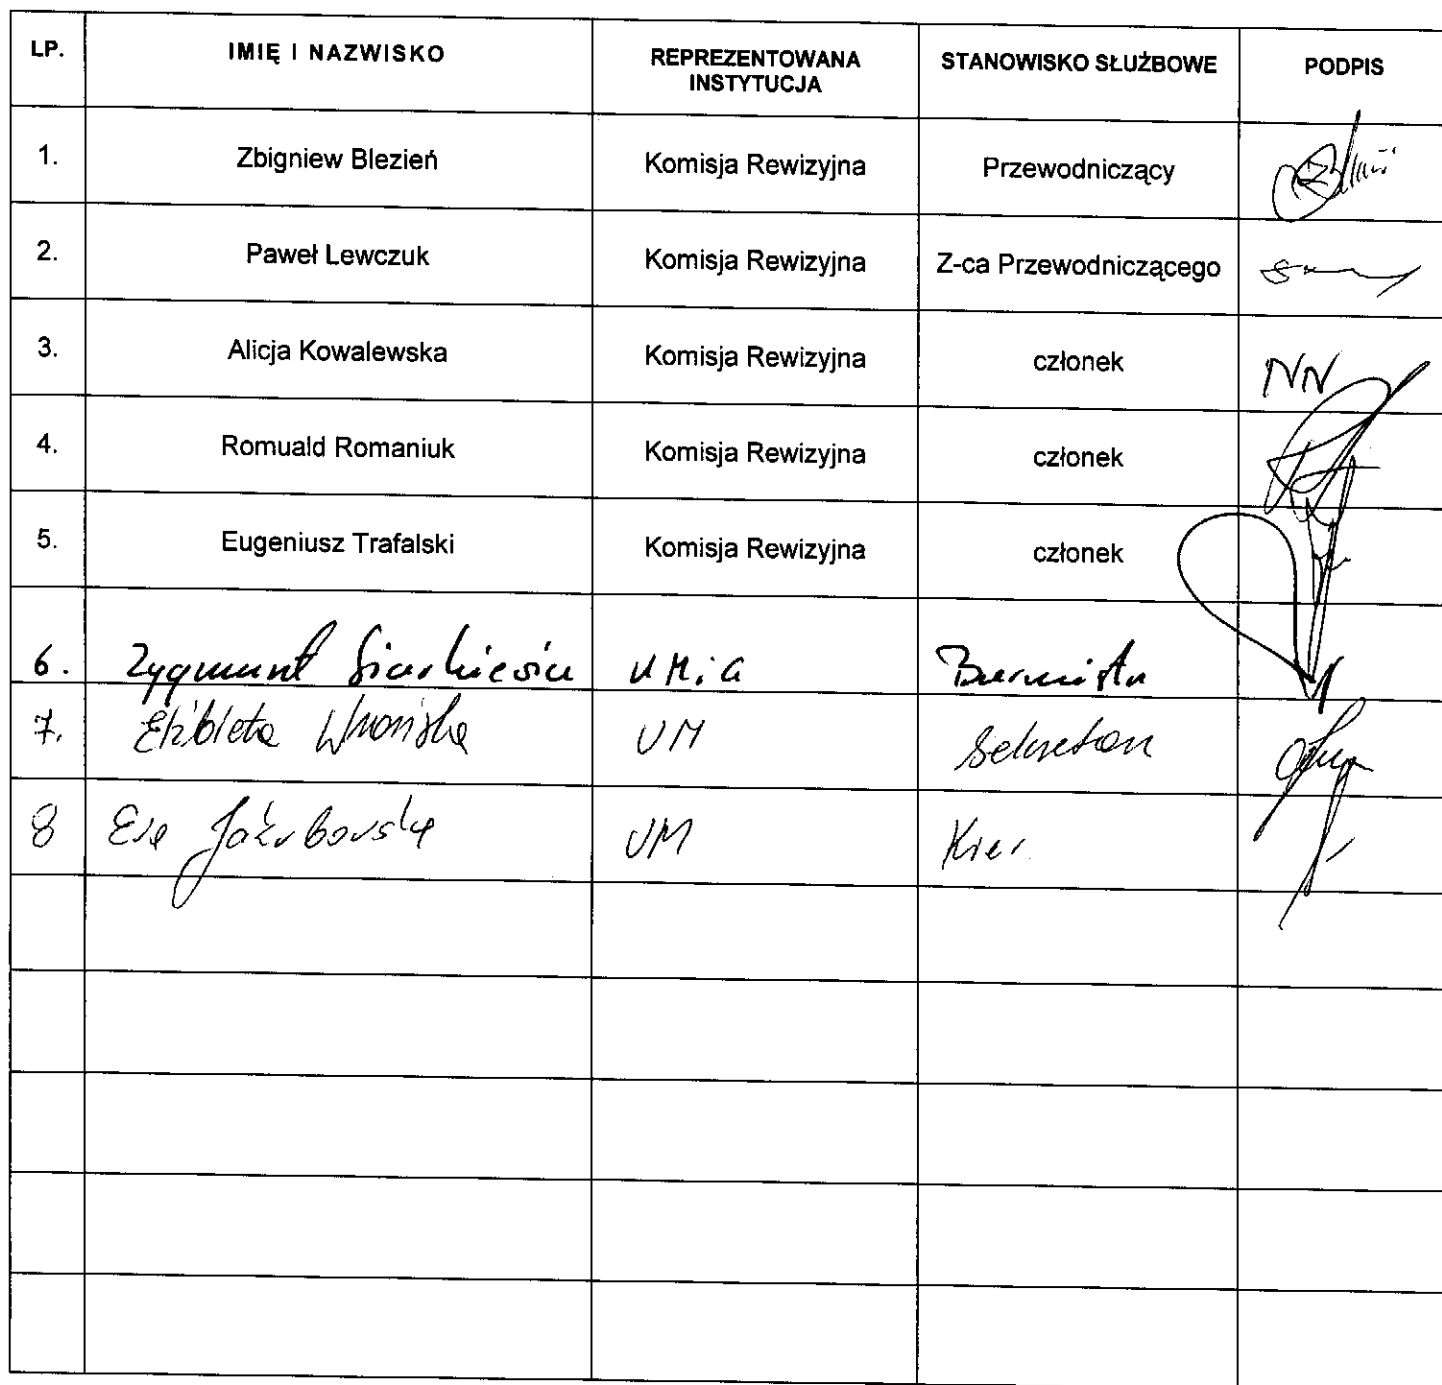 LP. IMIĘ I NAZWISKO REPREZENTOWANA INSTYTUCJA STANOWISKO SŁUŻBOWE PODPIS
1. Zbigniew Blezień Komisja Rewizyjna Przewodniczący
2. Paweł Lewczuk Komisja Rewizyjna Z-ca Przewodniczącego
3. Alicja Kowalewska Komisja Rewizyjna członek NN
4. Romuald Romaniuk Komisja Rewizyjna członek
5. Eugeniusz Trafalski Komisja Rewizyjna członek
6. Zygmunt UMiG Burmistrz
7. Elżbieta Wrońska UM Sekretarz
8 Ewa UM Kier.